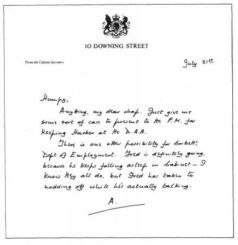 10 DOWNING STREET
From the Cabinet Secretary
July 21st
Humpy,
Anything, my dear chap. Just give me
some sort of case to present to the P.M. for
keeping Hacker at the D.A.A.
There is one other possibility for Corbett:
Dept of Employment. Fred is definitely going,
because he keeps falling asleep in Cabinet - I
know they all do, but Fred has taken to
nodding off while he's actually talking.
A.